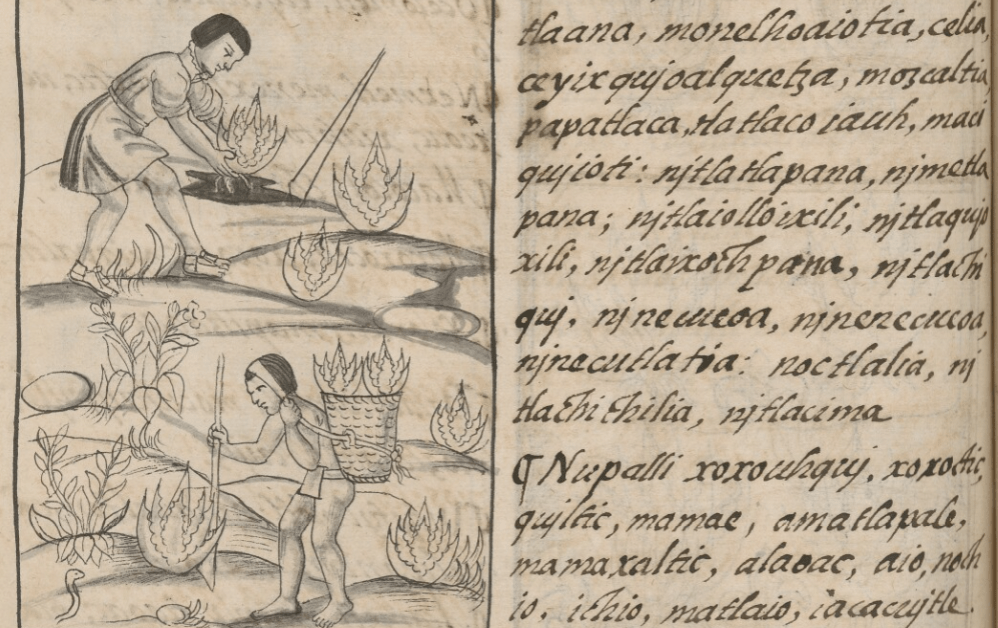 tlaana, monelhoaiotia, celia,
ceyix qujoalquetza, mozcaltia,
papatlaca, tlatlaco iauh, maci
qujioti: njtlatlapana, njmetla
pana; njtlaiolloixili, njtlaqujo
xili, njtlaixochpana, njtlachi
quj, njnecucoa, njnenecucoa,
njnecutlatia: noctlalia, nj
tlachichilia, njtlacima
¶ Nupalli xoxouhquj, xoxoctic,
quiltic, mamae, amatlapale,
mamaxaltic, alaoac, aio, noch
io, ichio, matlaio,